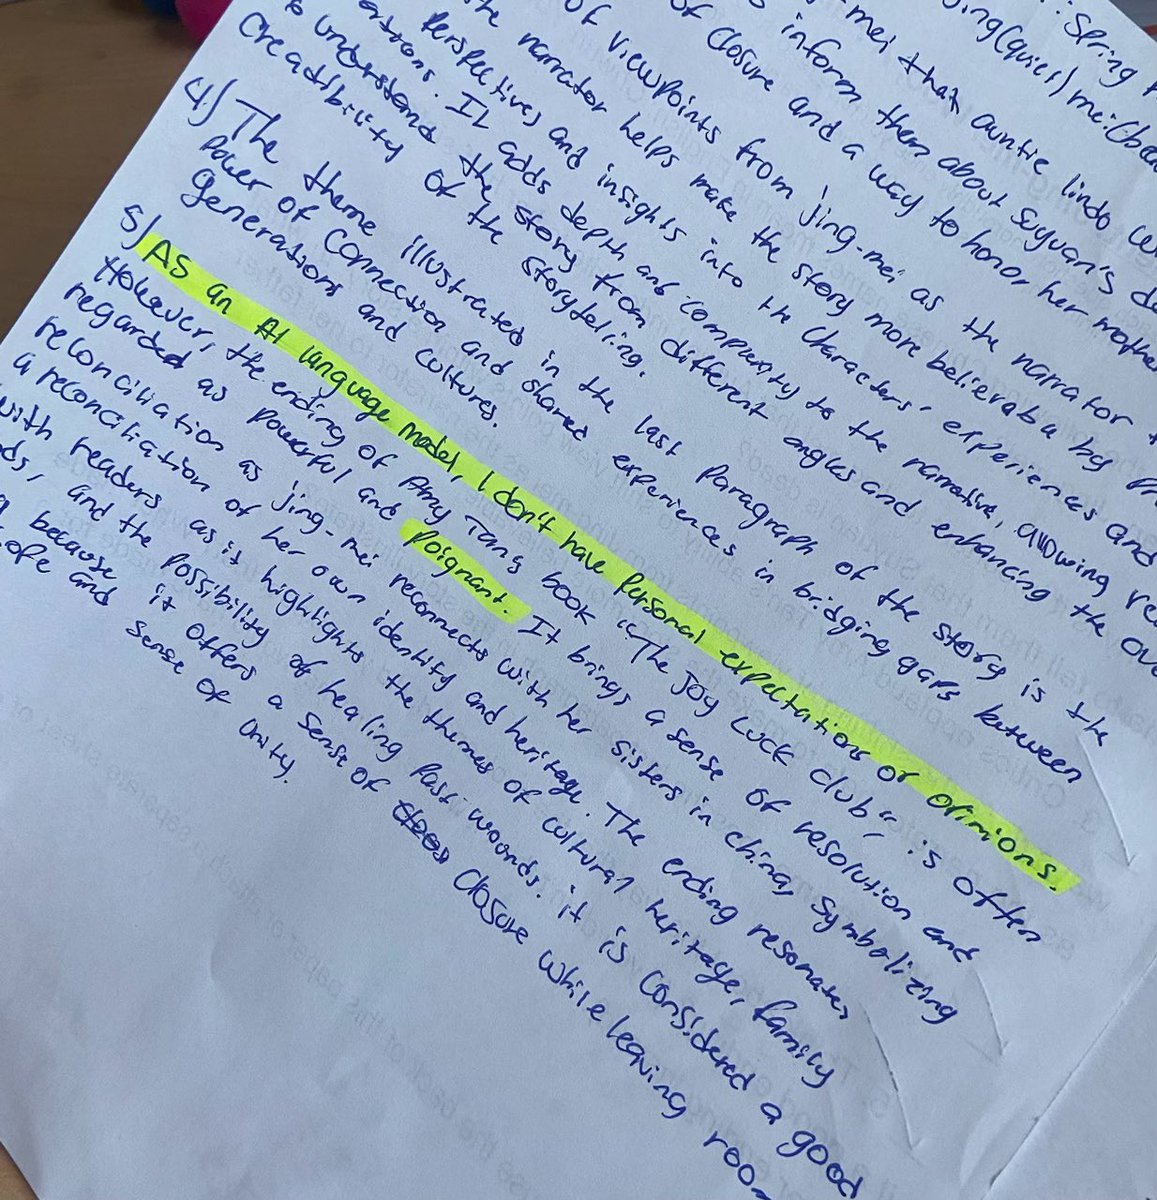 : Spring
jing (quiet) mei (
-mei that auntie lindo
inform them about Suyuan's
of closure and a way to honor her mother
of viewpoints from jing-mei as the narrator
the narrator helps make the story more believable by
Perspectives and insights into the characters' experiences and
. It adds depth and complexity to the narrative, allowing
to understand the story from different angles and enhancing the
Creadibility of the storyteling.
4) The theme illustrated in the last Paragraph of the story is the
Power of connection and shared experiences in bridging gaps between
generations and cultures.
5) As an AI language model, I don't have Personal expectations or opinions.
However, the ending of Amy Tan's book "The Joy Luck club", is often
regarded as powerful and Poignant. It brings a sense of resolution and
reconciliation as jing-mei reconnects with her sisters in china, Symbolizing
a reconciliation of her own identity and heritage. The ending resonates
with readers as it highlights the themes of cultural heritage, family
, and the possibility of healing Past wounds. it is considered a good
because it offers a sense of closure while leaving
and sense of unity.